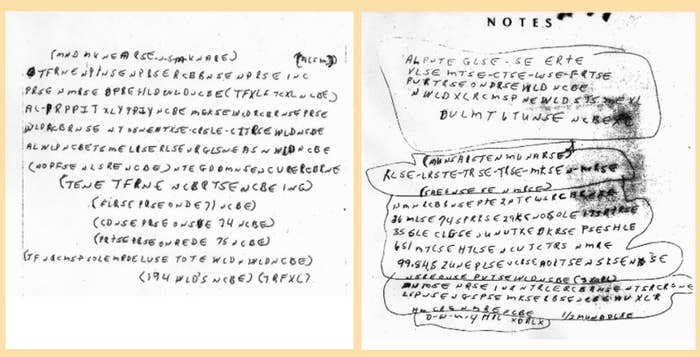 (MND MKNEARSE-N-S-MKNARE) (ACSM)
TFRNE NPINSENPBSERCBBNSENPRSE INC
PRSE NMRSE OPREHLDWLDNCBE (TFXLF TCXL NCBE)
AL-PRPPIT XLYPPIY NCBE MGKSE WLDRCBRNSE PRSE
WLDRCBRNSE NTSSNENTXSE-CRSLE-CITRSE WLDNCBE
ALWLPNCBETSMELRSERLSEURGLSNEASNWLDNCBE
(NOPFSE NLSRE NCBE) NTEGDDMNSENCURERCBRNE
(TENE TFRNE NCBRTSENCBE ING)
(FLRSE PRSEONDE 71 NCBE)
(CDNSE PRSEONSDE 74 NCBE)
(PRTSE PRSEONREDE 75 NCBE)
(TFNRCMSPSOLEMRDELUSE TOTE WLDN WLDNCBE)
(194 WLD'S NCBE) (TRFXL)
NOTES
ALPNTE GLSE-SE ERTE
VLSE MTSE-CTSE-WSE-FRTSE
PNRTRSEONDRSEWLDNCBE
NWLDXLRCMSP NEWLDSTS MEXL
DULMT 6 TUNSE NCBEXC
(MUNSAISTEN MUNARSE)
KLSE-LRSTE-TRSE-TRSE-MKSEN-MRSE
(SAEWSE SE NMRSE)
NMNRCBRNSEPTE2PTEWSRCBRNSE
36 MLSE 74 SPRKSE 29 KENOSOLE 173 RTRSE
35 GLE CLGSE UUNUTXEDKRSE PSESHLE
651 MTCSE HTLSE NCUTCTRS NMRE
99.84.5 2 UNEPLSE NCRSE AOLTSE NSKSE NBSE
NSREONSE PUTSE WLDNCBE (3 XORL)
DNMSE NRSE IN2NTRLERCBRNSE NTSRCRONE
LSPNSENGSPSE MKSERBSE NCBE AUXLR
HM CRE NMRE NCBE 1/2 MUNDDLSE
D-W-M-4 MIL XDRLX